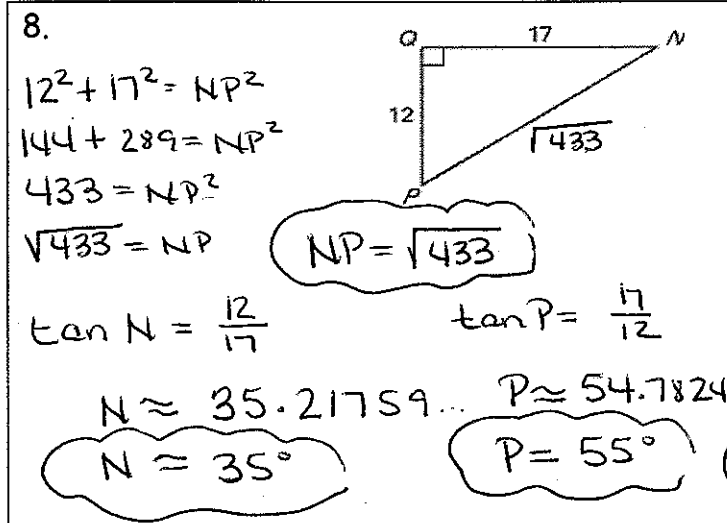 8.
Q 17 N
12² + 17² = NP²
12
144 + 289 = NP²
√433
433 = NP²
P
√433 = NP
NP = √433
tan N = 12/17
tan P = 17/12
N ≈ 35.21759... P ≈ 54.7824
N ≈ 35° P = 55°